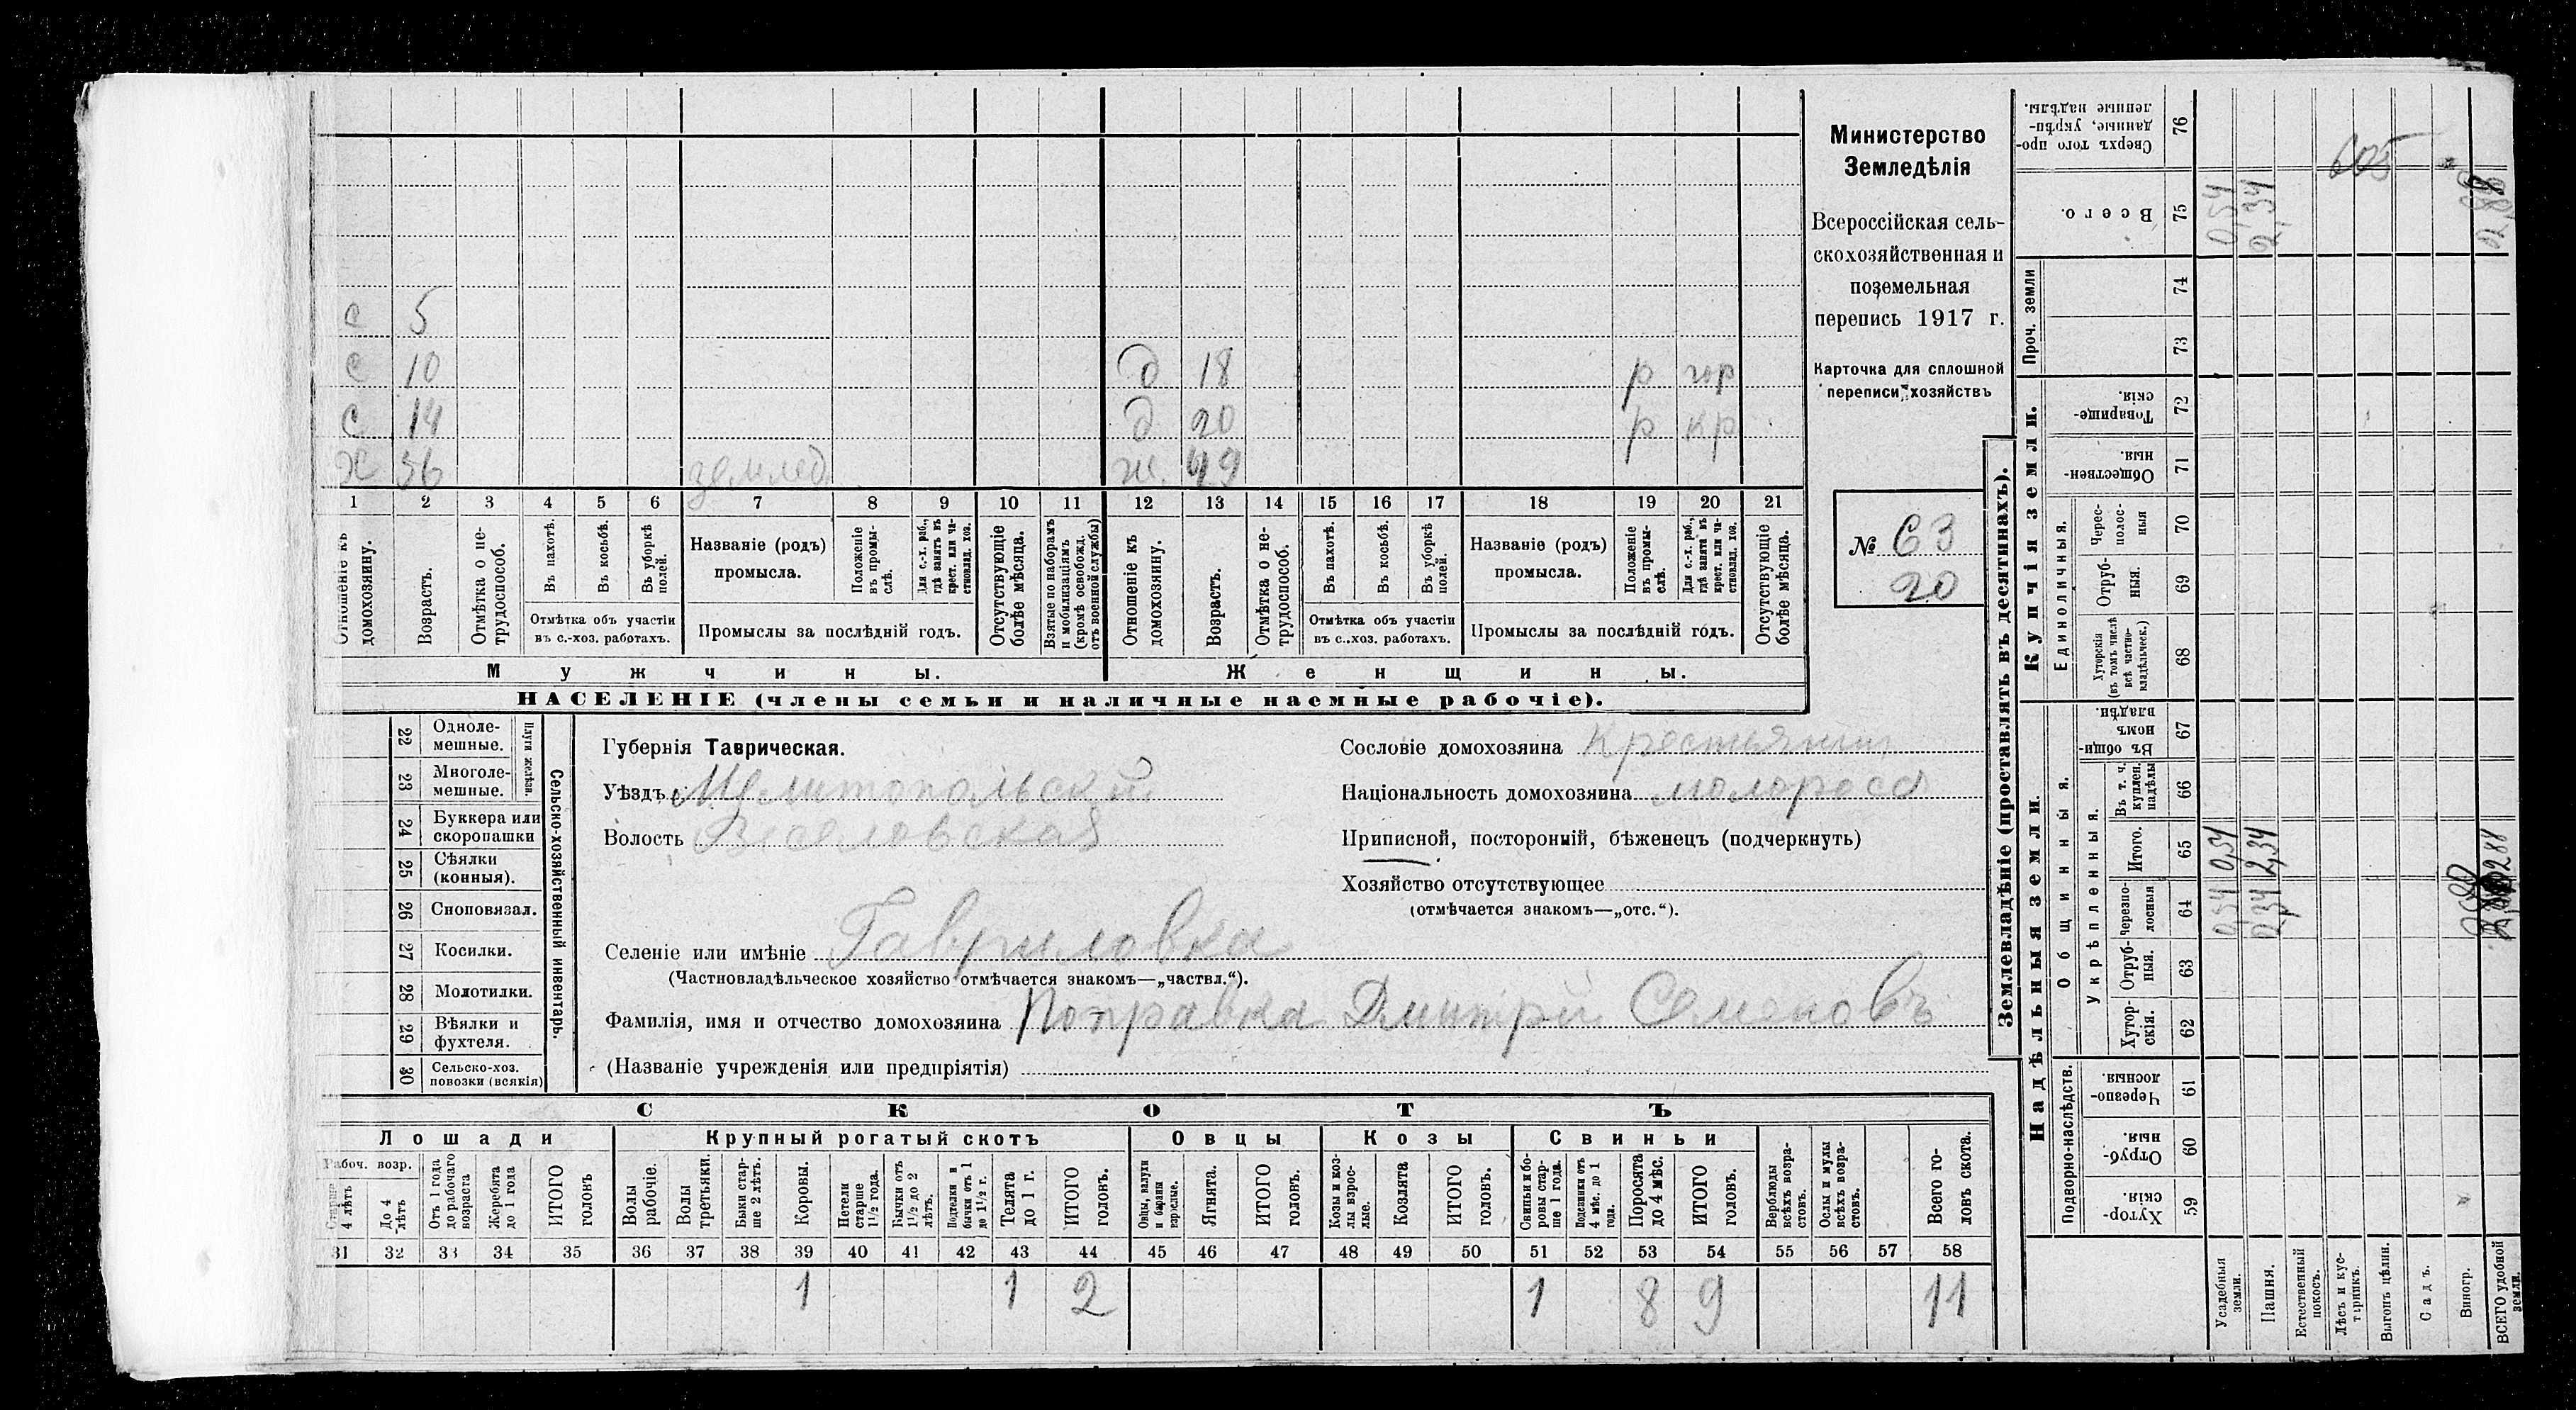 с 5
с 10 д 18 р гор
с 14 д 20 р кр
х 56 землед ж 49
1 2 3 4 5 6 7 8 9 10 11 12 13 14 15 16 17 18 19 20 21
Отношеніе къ домохозяину.
Возрастъ.
Отмѣтка о не-
трудоспособ.
Въ пахотѣ.
Въ косьбѣ.
Въ уборкѣ
полей.
Отмѣтка объ участіи
въ с.-хоз. работахъ.
Названіе (родъ)
промысла.
Положеніе
въ промы-
слѣ.
Для с.-х. раб.,
гдѣ занятъ въ
крест. или ча-
стновлад. хоз.
Промыслы за послѣдній годъ.
Отсутствующіе
болѣе мѣсяца.
Взятые по наборамъ
и мобилизаціямъ
(кромѣ освобожд.
отъ военной службы)
Отношеніе къ
домохозяину.
Возрастъ.
Отмѣтка о не-
трудоспособ.
Въ пахотѣ.
Въ косьбѣ.
Въ уборкѣ
полей.
Отмѣтка объ участіи
въ с.-хоз. работахъ.
Названіе (родъ)
промысла.
Положеніе
въ промы-
слѣ.
Для с.-х. раб.,
гдѣ занята въ
крест. или ча-
стновлад. хоз.
Промыслы за послѣдній годъ.
Отсутствующіе
болѣе мѣсяца.
Мужчины. Женщины.
НАСЕЛЕНІЕ (члены семьи и наличные наемные рабочіе).
Министерство
Земледѣлія
Всероссійская сель-
скохозяйственная и
поземельная
перепись 1917 г.
Карточка для сплошной
переписи хозяйствъ
№ 63
20
22 Одноле-
мешные.
23 Многоле-
мешные.
Плуги желѣзн.
24 Буккера или
скоропашки
25 Сѣялки
(конныя).
26 Сноповязал.
27 Косилки.
28 Молотилки.
29 Вѣялки и
фухтеля.
30 Сельско-хоз.
повозки (всякія)
Сельско-хозяйственный инвентарь.
Губернія Таврическая.
Уѣздъ Мелитопольскій
Волость Веселовская
Сословіе домохозяина Крестьянин
Національность домохозяина малоросс
Приписной, посторонній, бѣженецъ (подчеркнуть)
Хозяйство отсутствующее
(отмѣчается знакомъ—„отс.“).
Селеніе или имѣніе Гавриловка
(Частновладѣльческое хозяйство отмѣчается знакомъ—„частвл.“).
Фамилія, имя и отчество домохозяина Поправка Дмитрій Семеновъ
(Названіе учрежденія или предпріятія)
СКОТЪ
Лошади Крупный рогатый скотъ Овцы Козы Свиньи
Рабоч. возр.
Старше
4 лѣтъ
До 4
лѣтъ
Отъ 1 года
до рабочаго
возраста
Жеребята
до 1 года
ИТОГО
головъ
Волы
рабочіе.
Волы
третьяки.
Быки стар-
ше 2 лѣтъ.
Коровы.
Нетели
старше
1½ года.
Бычки отъ
1½ до 2
лѣтъ.
Подтелки и
бычки отъ 1
до 1½ г.
Телята
до 1 г.
ИТОГО
головъ.
Овцы, валухи
и бараны
взрослые.
Ягнята.
ИТОГО
головъ.
Козы и коз-
лы взрос-
лые.
Козлята
ИТОГО
головъ.
Свиньи и бо-
ровы стар-
ше 1 года.
Подсвинки отъ
4 мѣс. до 1
года.
Поросята
до 4 мѣс.
ИТОГО
головъ.
Верблюды
всѣхъ возра-
стовъ.
Ослы и мулы
всѣхъ возра-
стовъ.
Всего го-
ловъ скота.
31 32 33 34 35 36 37 38 39 40 41 42 43 44 45 46 47 48 49 50 51 52 53 54 55 56 57 58
1 1 2 1 8 9 11
Землевладѣніе (проставлять въ десятинахъ).
Надѣльныя земли. Купчія земли. Проч. земли
Подворно-наслѣдств. Общинныя. Единоличныя.
Укрѣпленныя.
Хутор-
скія. 59
Отруб-
ныя. 60
Черезпо-
лосныя 61
Хутор-
скія. 62
Отруб-
ныя. 63
Черезпо-
лосныя 64
Итого. 65
Въ т. ч.
куплен.
надѣлы 66
Въ общи-
номъ
владѣн. 67
Хуторскія
(въ томъ числѣ
всѣ частно-
владѣльческ.) 68
Отруб-
ныя. 69
Черес-
полос-
ныя 70
Обществен-
ныя. 71
Товарище-
скія. 72
73
74
Всего. 75
Сверхъ того про-
данные, укрѣп-
ленные надѣлы. 76
Усадебныя
земли. 0,54 0,54 0,54
Пашня. 2,34 2,34 2,34
Естественный
покосъ.
Лѣсъ и кус-
тарникъ.
605
Выгонъ цѣлин.
Садъ.
Виногр.
ВСЕГО удобной
земли. 2,88 2,88